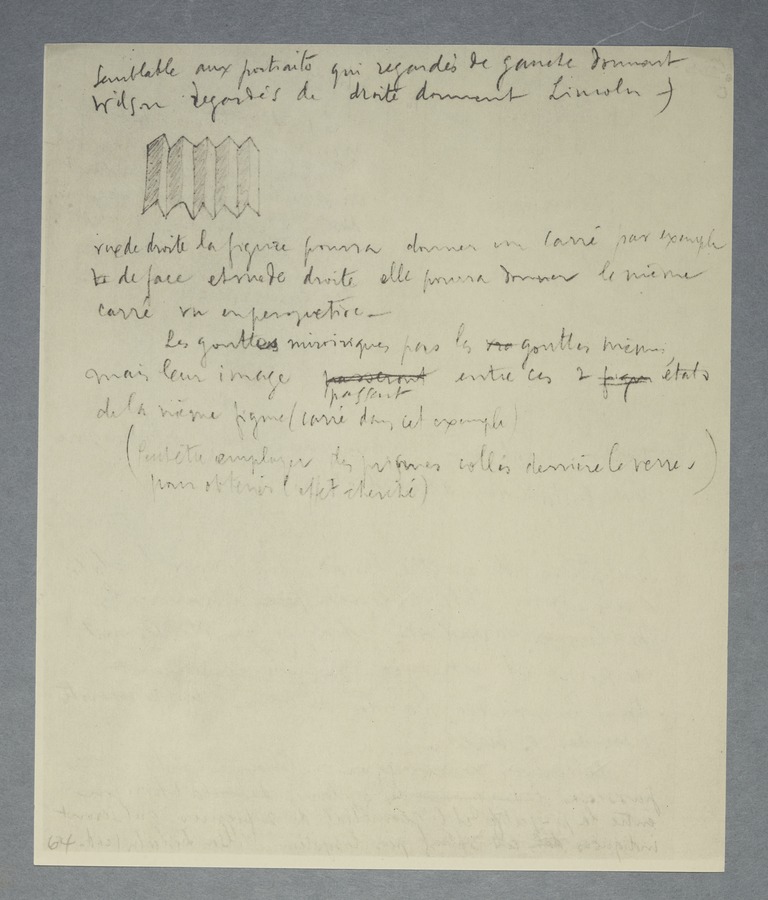 semblable aux portraits qui regardés de gauche donnent
Wilson regardés de droite donnent Lincoln –)
vue de droite la figure pourra donner un carré par exemple
de face et vue de droite elle pourra donner le même
carré vu en perspective –
Les gouttes miroiriques pas les gouttes mêmes,
mais leur image passerait entre ces 2 figu états
passent
de la même figure (carré dans cet exemple)
(Peut-être employer des prismes collés derrière le verre.
pour obtenir l'effet cherché)
64